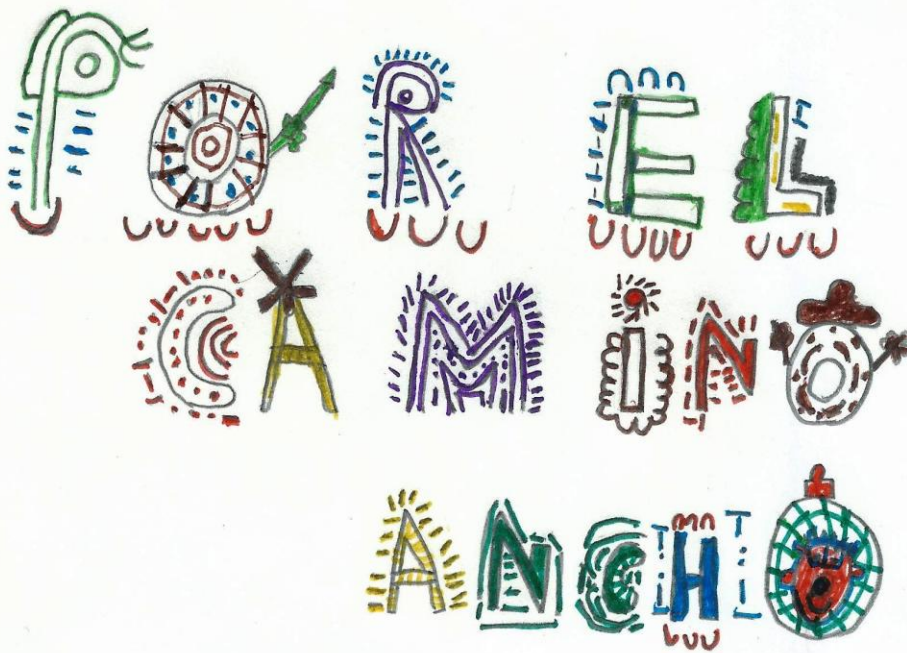 POR EL
CAMiNO
ANCHO